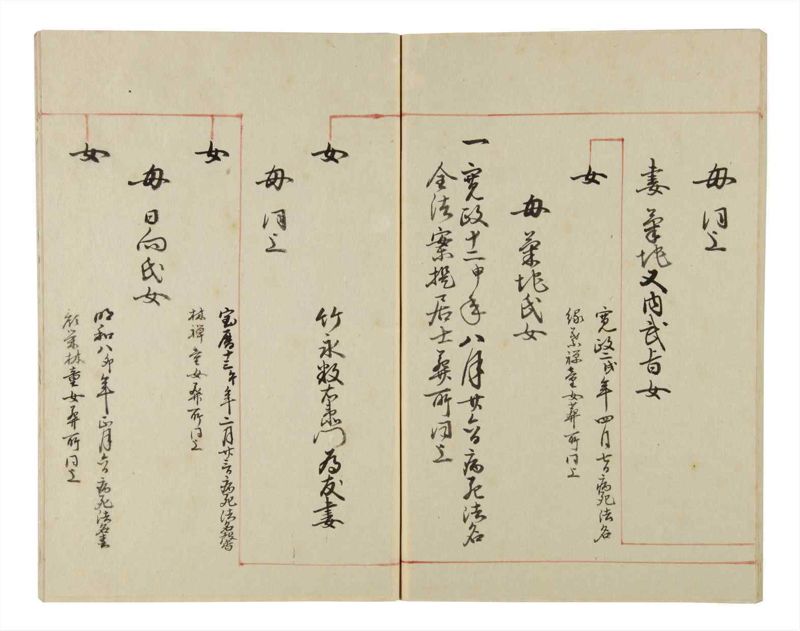 母 同上
妻 菊地又内武昌女
寛政二戌年四月七日病死法名
禅童女葬所同上
女
母 菊地氏女
一 寛政十二申年八月廿六日病死法名
全法案提居士葬所同上
女
竹永数右衛門為友妻
母 同上
女
宝暦十二午年二月廿三日病死法名
林禅童女葬所同上
母 日向氏女
女
明和八卯年正月六日病死法名
葉林童女葬所同上